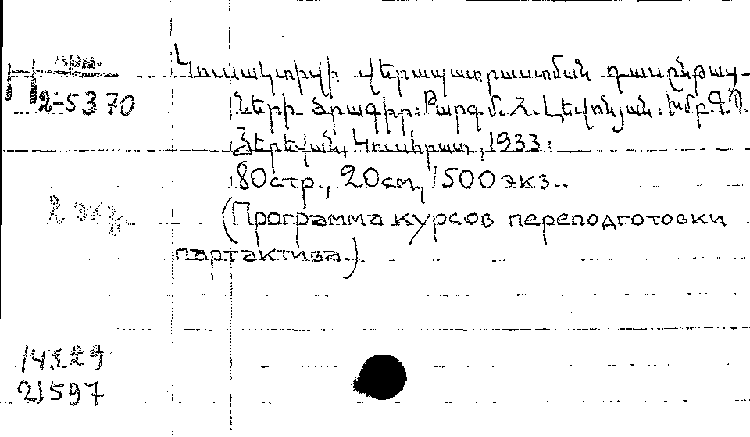 арм.
П
2-5370
Կուսակտիվի վերապատրաստման դասընթաց-
ների ծրագիր: Թարգմ. Հ. Լևոնյան. Խմբ.
Յերեվան, Կուսհրատ, 1933:
80стр., 20см, 1500экз..
2 экз.
(Программа курсов переподготовки
партактива)
14329
21597